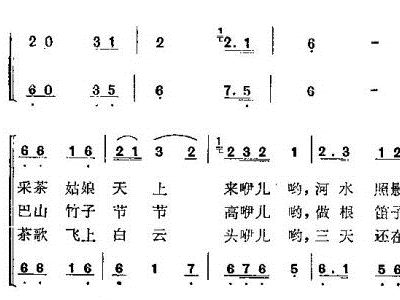 2 0 3 1 | 2 | 1 2. 1 | 6 –
6 0 3 5 | 6 | 7. 5 | 6 –
6 6 1 6 | 2 1 3 2 | 1 2 3 2 1 | 2. 3 1 2
采茶 姑娘 天 上 来咿儿 哟,河 水 照
巴山 竹子 节 节 高咿儿 哟,做 根 笛子
茶歌 飞上 白 云 头咿儿 哟,三 天 还在
6 6 1 6 | 6 1 7 | 6 7 6 5 | 6. 1 5 6